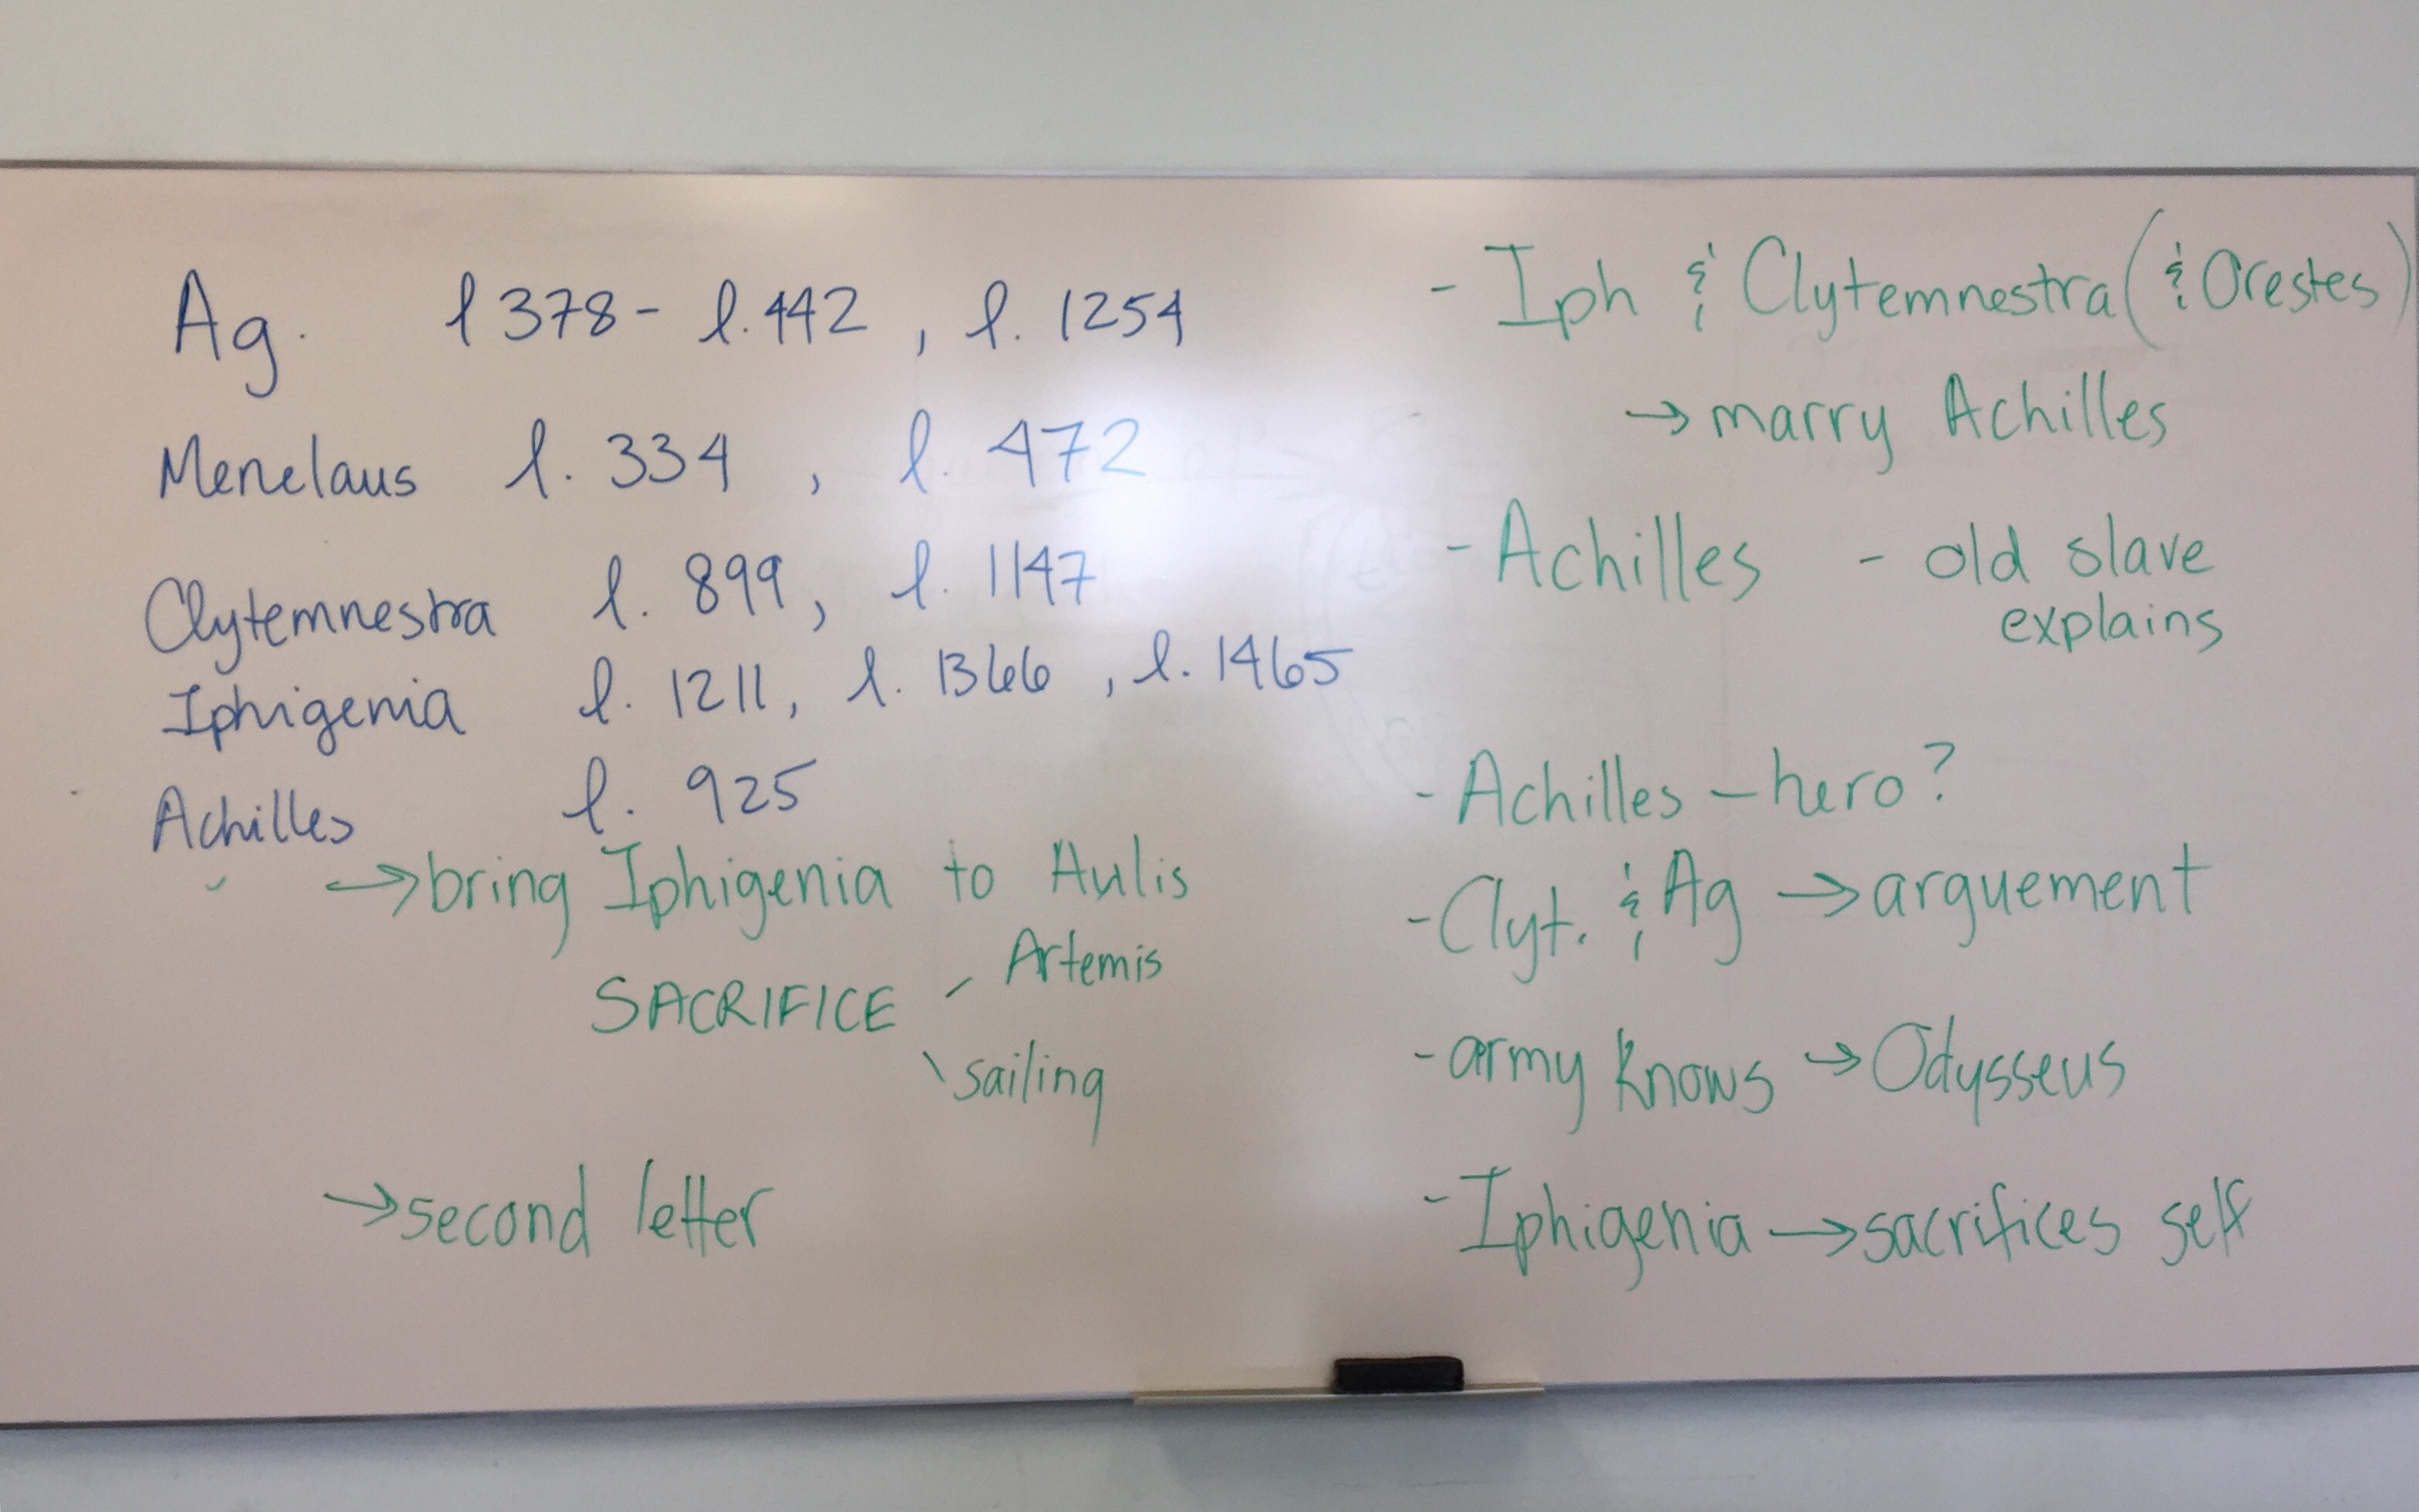 Ag. l 378 - l. 442 , l. 1254
Menelaus l. 334 , l. 472
Clytemnestra l. 899, l. 1147
Iphigenia l. 1211, l. 1366 , l. 1465
Achilles l. 925
→ bring Iphigenia to Aulis
SACRIFICE - Artemis
\ sailing
→ second letter
- Iph & Clytemnestra (& Orestes)
→ marry Achilles
- Achilles - old slave
explains
- Achilles - hero?
- Clyt. & Ag → arguement
- army knows → Odysseus
- Iphigenia → sacrifices self